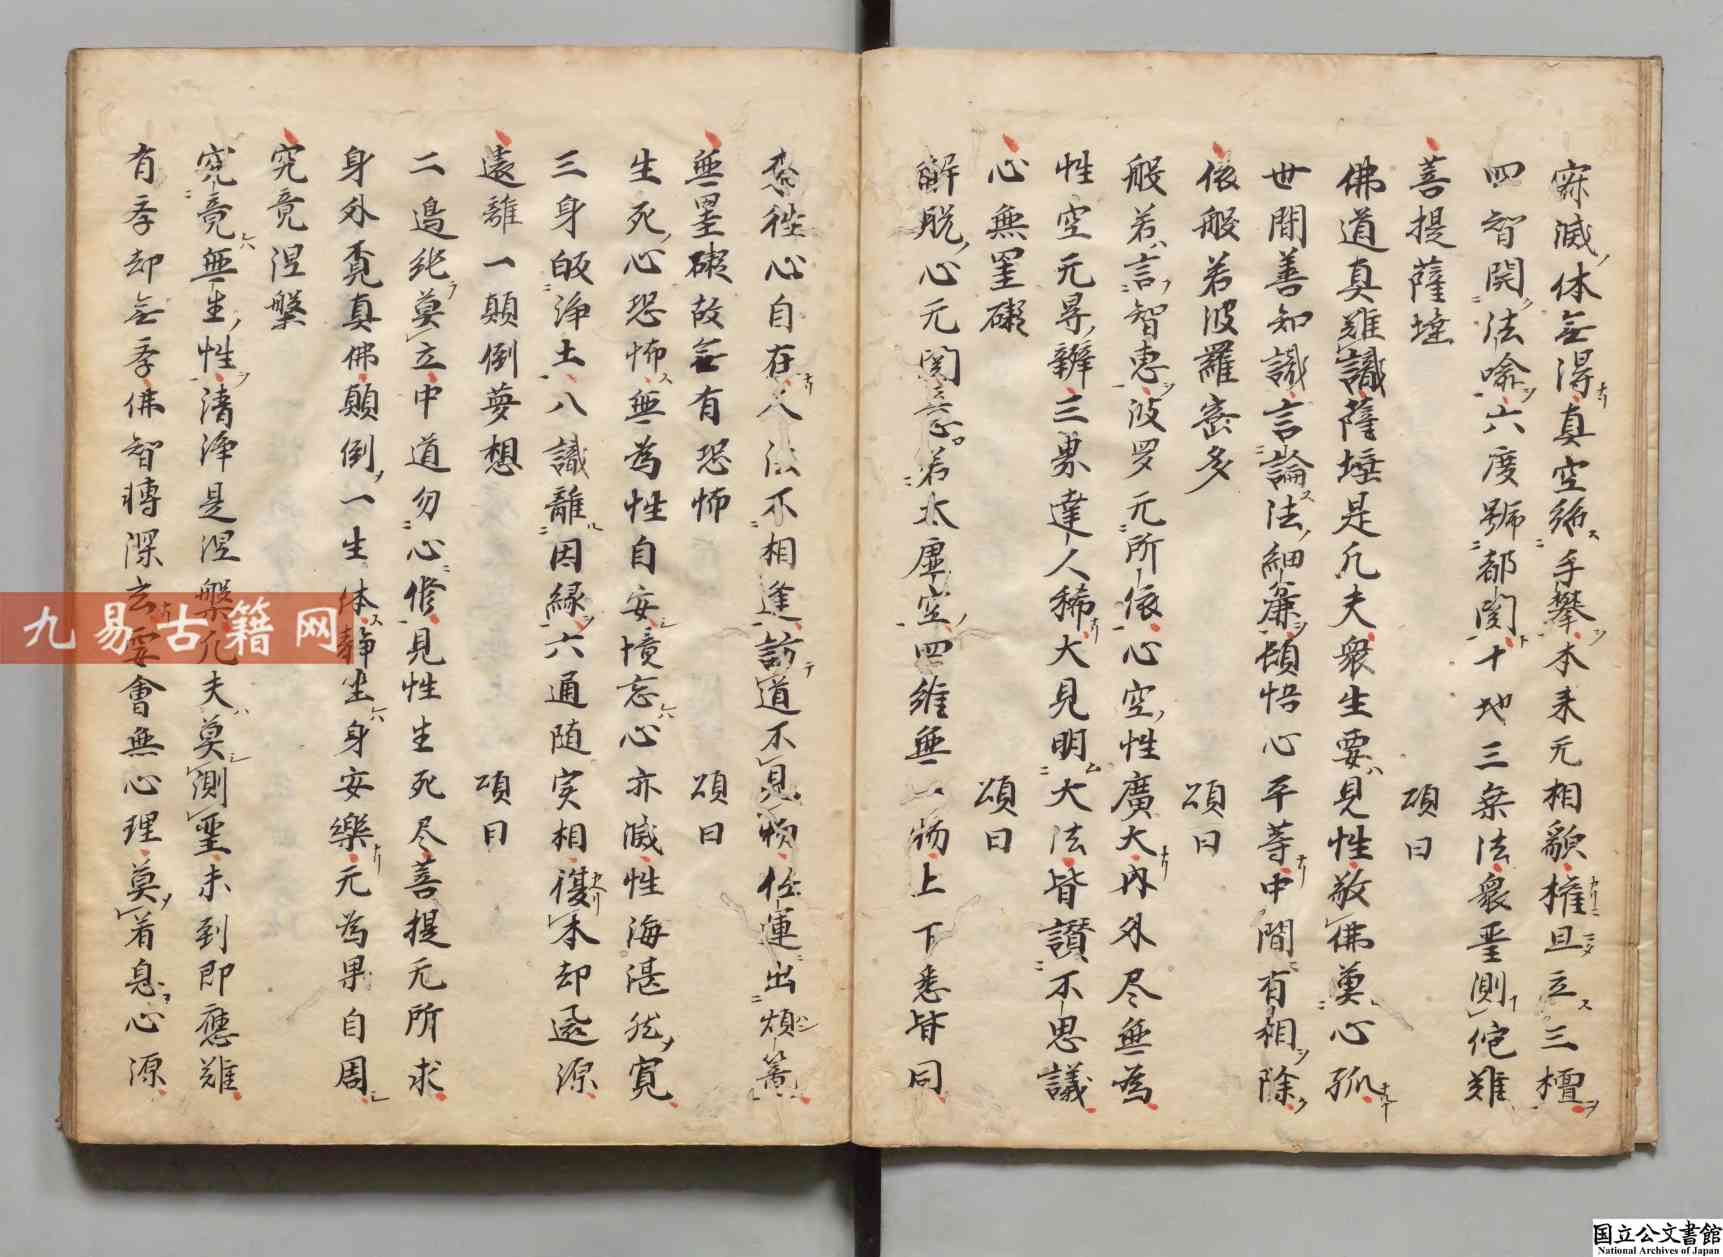 寂滅体無得真空絶手攀本来元相貌権且立三檀
四智開法喩六度號都関十地三乗法衆聖測佗難
菩提薩埵 頌曰
佛道真難識薩埵是凡夫衆生要見性敬佛莫心孤
世間善知識言論法細麁頓悟心平等中間有相除
依般若波羅蜜多 頌曰
般若言智恵波罗元所依心空性廣大内外尽無為
性空元㝵辯三界達人稀大見明大法皆讃不思議
心無罣礙 頌曰
解脱心元罣若太虚空四維無一物上下悉皆同
来徃心自在人法不相逢訪道不見物任運出煩籠
無罣礙故無有恐怖 頌曰
生死心恐怖無為性自安境忘心亦滅性海湛然寛
三身皈浄土八識離因縁六通随実相復本却還源
遠離一顛倒夢想 頌曰
二邉純莫立中道勿心修見性生死尽菩提元所求
身外覓真佛顛倒一生休静坐身安樂元為果自周
究竟涅槃
究竟無生性清浄是涅槃凡夫莫測聖未到即應難
有季却無季佛智轉深玄要會無心理莫着息心源
九易古籍网
国立公文書館
National Archives of Japan